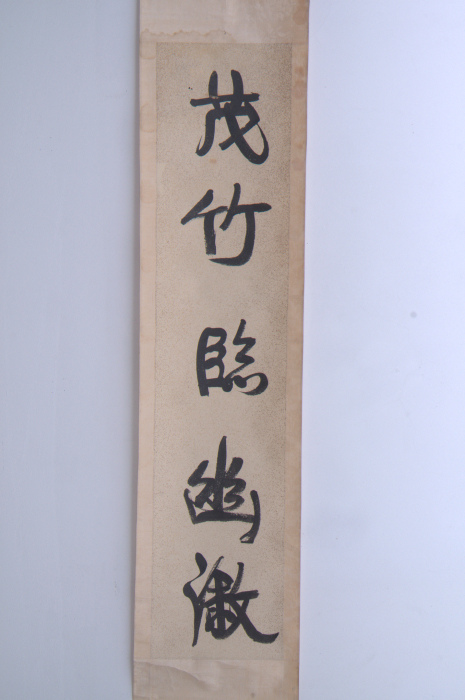 茂竹臨幽澈